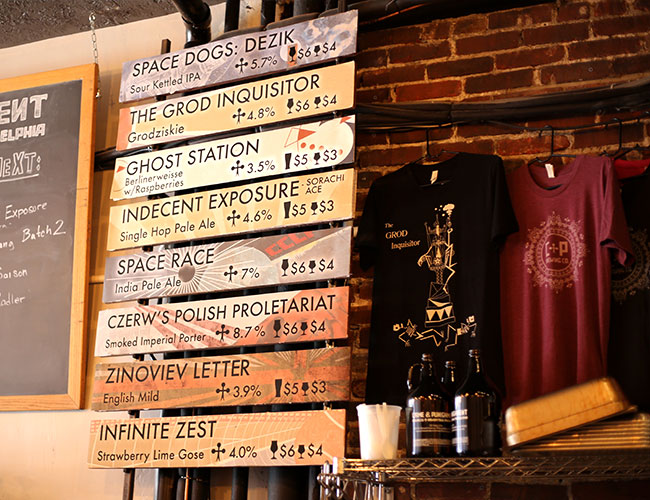 ENT
DELPHIA
NEXT:
Exposure
ang Batch 2
Saison
SPACE DOGS: DEZIK
Sour Kettled IPA 5.7% $6 $4
THE GROD INQUISITOR
Grodziskie 4.8% $6 $4
GHOST STATION
Berlinerweisse
w/Raspberries 3.5% $5 $3
INDECENT EXPOSURE - SORACHI
ACE
Single Hop Pale Ale 4.6% $5 $3
SPACE RACE
India Pale Ale 7% $6 $4
CZERW'S POLISH PROLETARIAT
Smoked Imperial Porter 8.7% $6 $4
ZINOVIEV LETTER
English Mild 3.9% $5 $3
INFINITE ZEST
Strawberry Lime Gose 4.0% $6 $4
The
GROD
Inquisitor